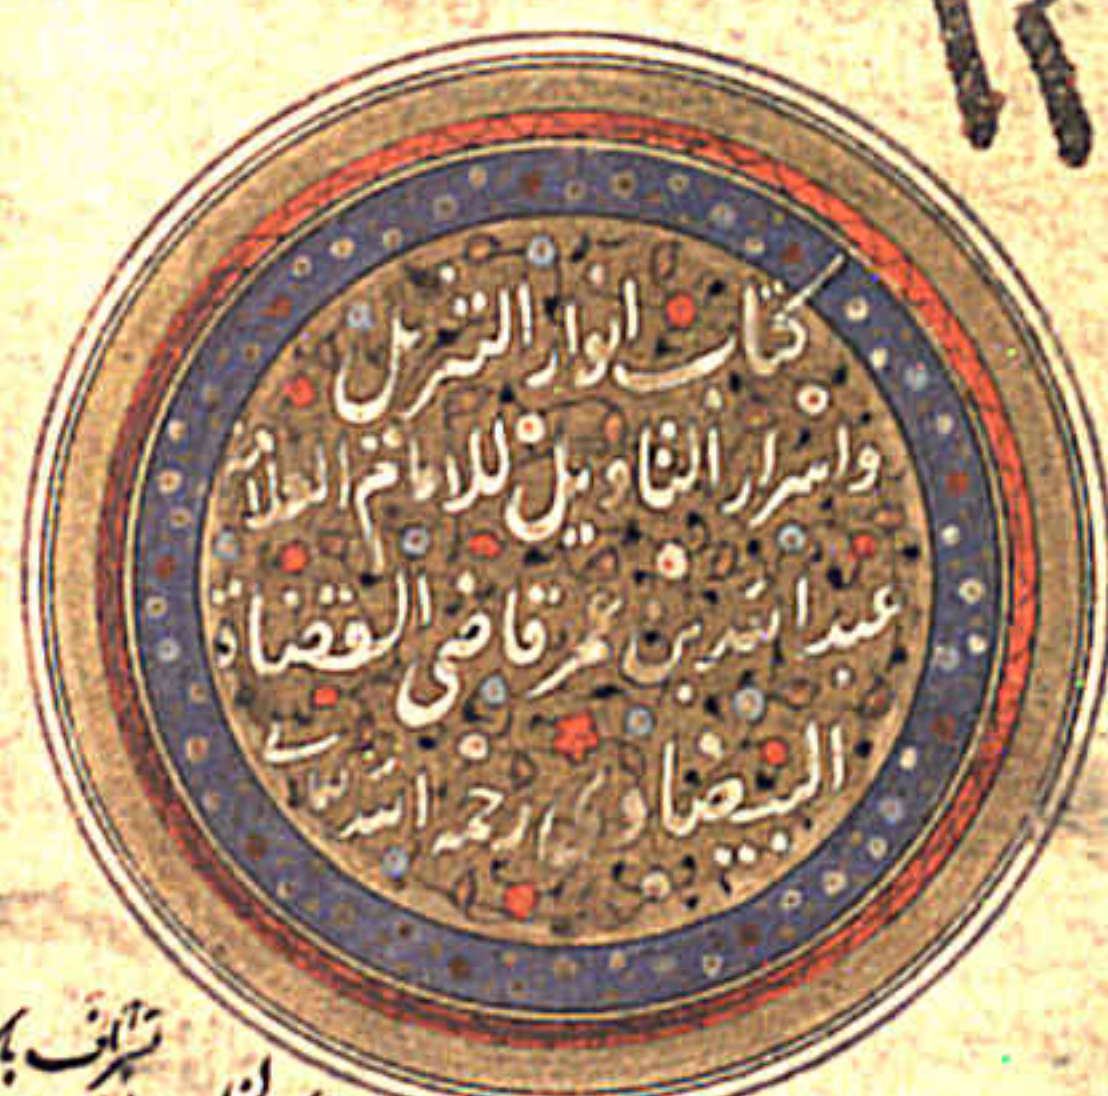 كتاب انوار التنزيل
واسرار التاويل للامام العلامة
عبد الله بن عمر قاضى القضاة
البيضاوي رحمه الله تعالى